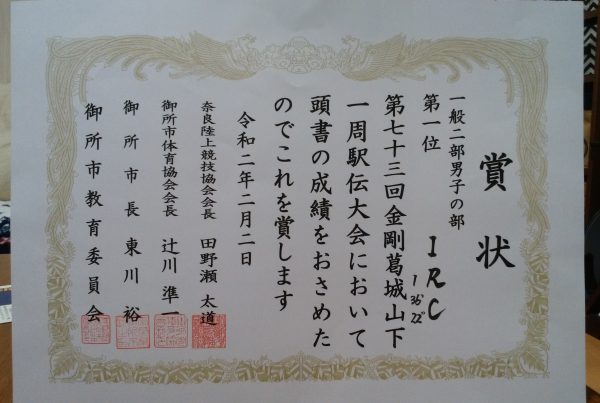 賞状
一般二部男子の部
第一位 IRC
1°36'22"
第七十三回金剛葛城山下
一周駅伝大会において
頭書の成績をおさめた
のでこれを賞します
令和二年二月二日
奈良陸上競技協会会長 田野瀬太道
御所市体育協会会長 辻川準一
御所市長 東川裕
御所市教育委員会